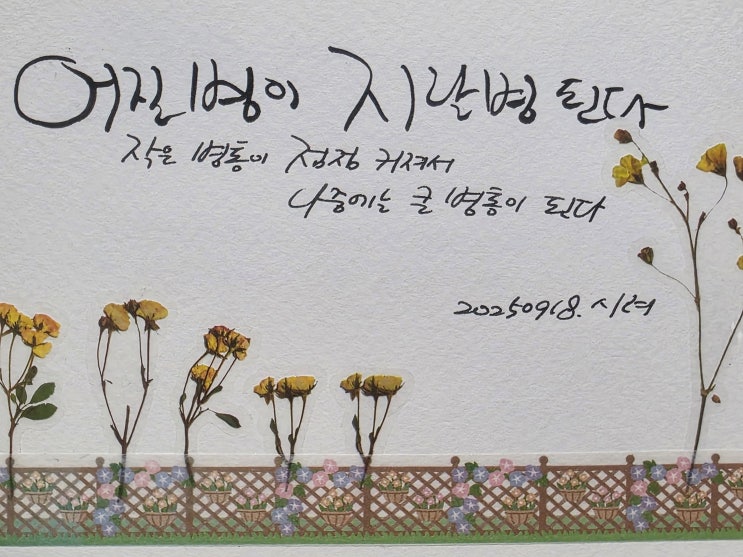 어질병이 지랄병 된다
작은 병통이 점점 커져서
나중에는 큰 병통이 된다
20250918. 시려